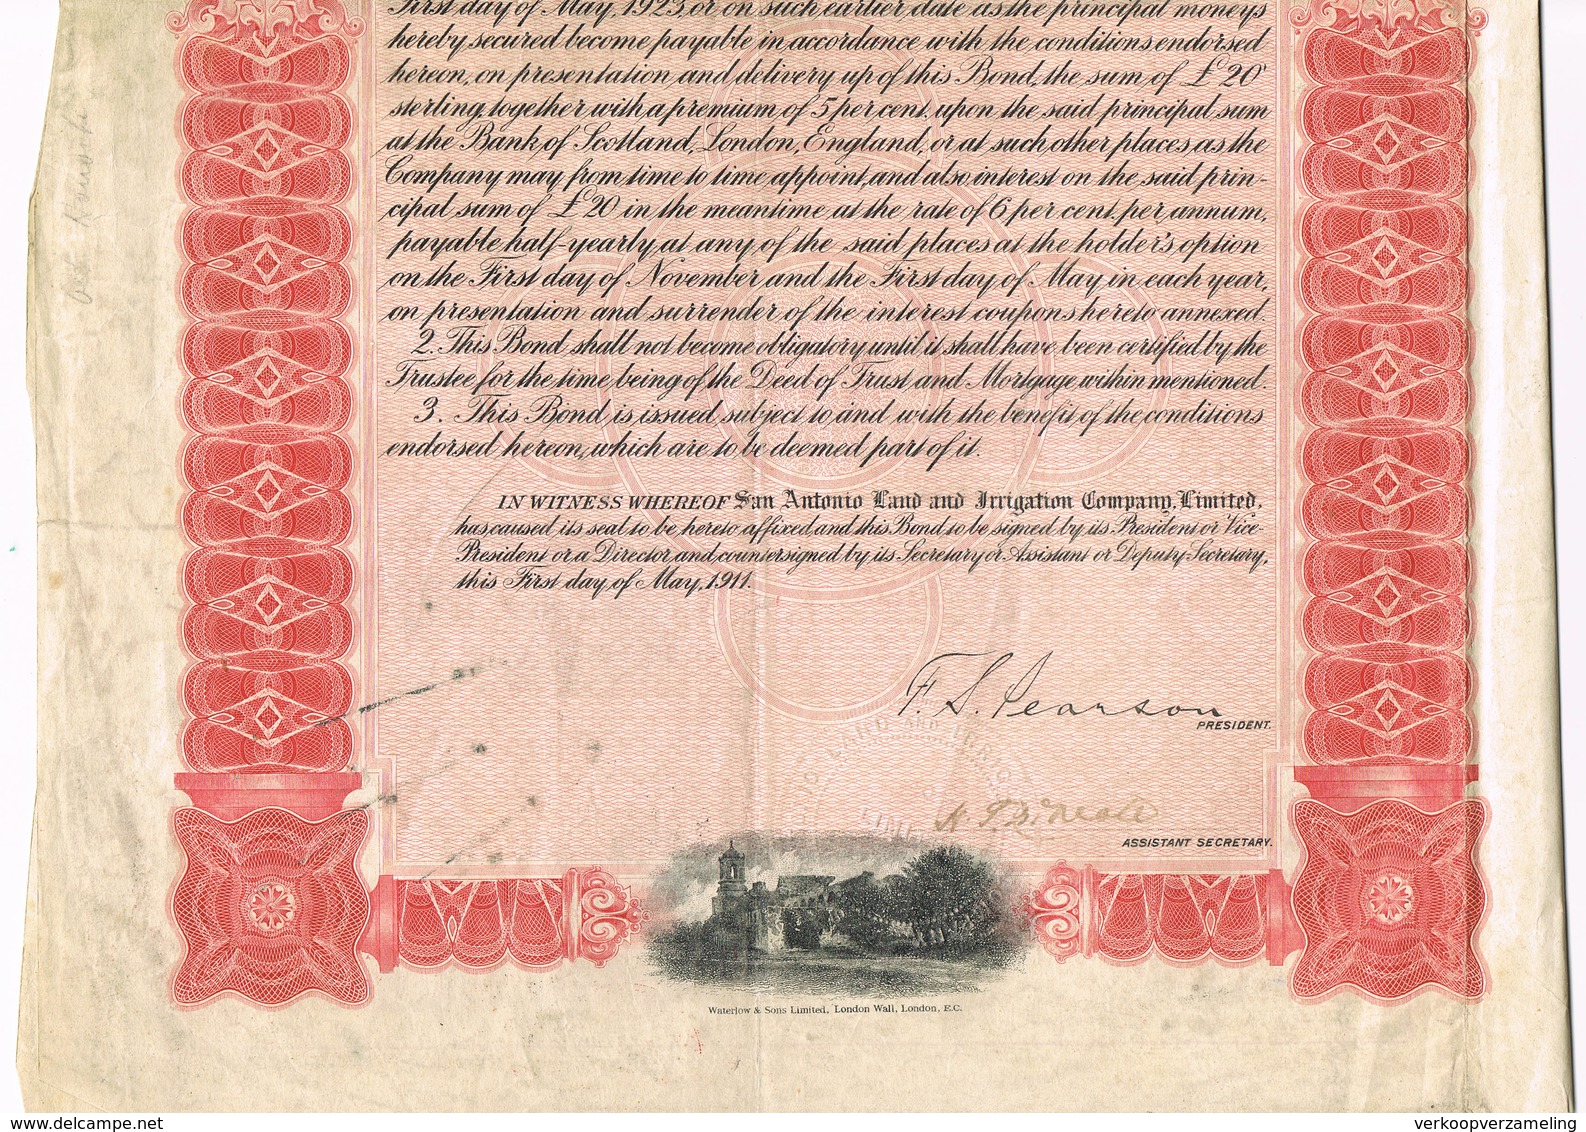 First day of May, 1923, or on such earlier date as the principal moneys
hereby secured become payable in accordance with the conditions endorsed
hereon, on presentation and delivery up of this Bond, the sum of £20
sterling, together with a premium of 5 per cent. upon the said principal sum
at the Bank of Scotland, London, England, or at such other places as the
Company may from time to time appoint, and also interest on the said prin-
cipal sum of £20 in the meantime at the rate of 6 per cent. per annum,
payable half-yearly at any of the said places at the holder's option
on the First day of November and the First day of May in each year,
on presentation and surrender of the interest coupons hereto annexed.
2. This Bond shall not become obligatory until it shall have been certified by the
Trustee for the time being of the Deed of Trust and Mortgage within mentioned.
3. This Bond is issued subject to and with the benefit of the conditions
endorsed hereon, which are to be deemed part of it.
IN WITNESS WHEREOF San Antonio Land and Irrigation Company, Limited,
has caused its seal to be hereto affixed and this Bond to be signed by its President or Vice-
President or a Director, and countersigned by its Secretary or Assistant or Deputy-Secretary,
this First day of May, 1911.
F. S. Pearson
PRESIDENT.
LAND AND IRRIG
LIMI
ASSISTANT SECRETARY.
Waterlow & Sons Limited, London Wall, London, E.C.
delcampe.net
verkoopverzameling